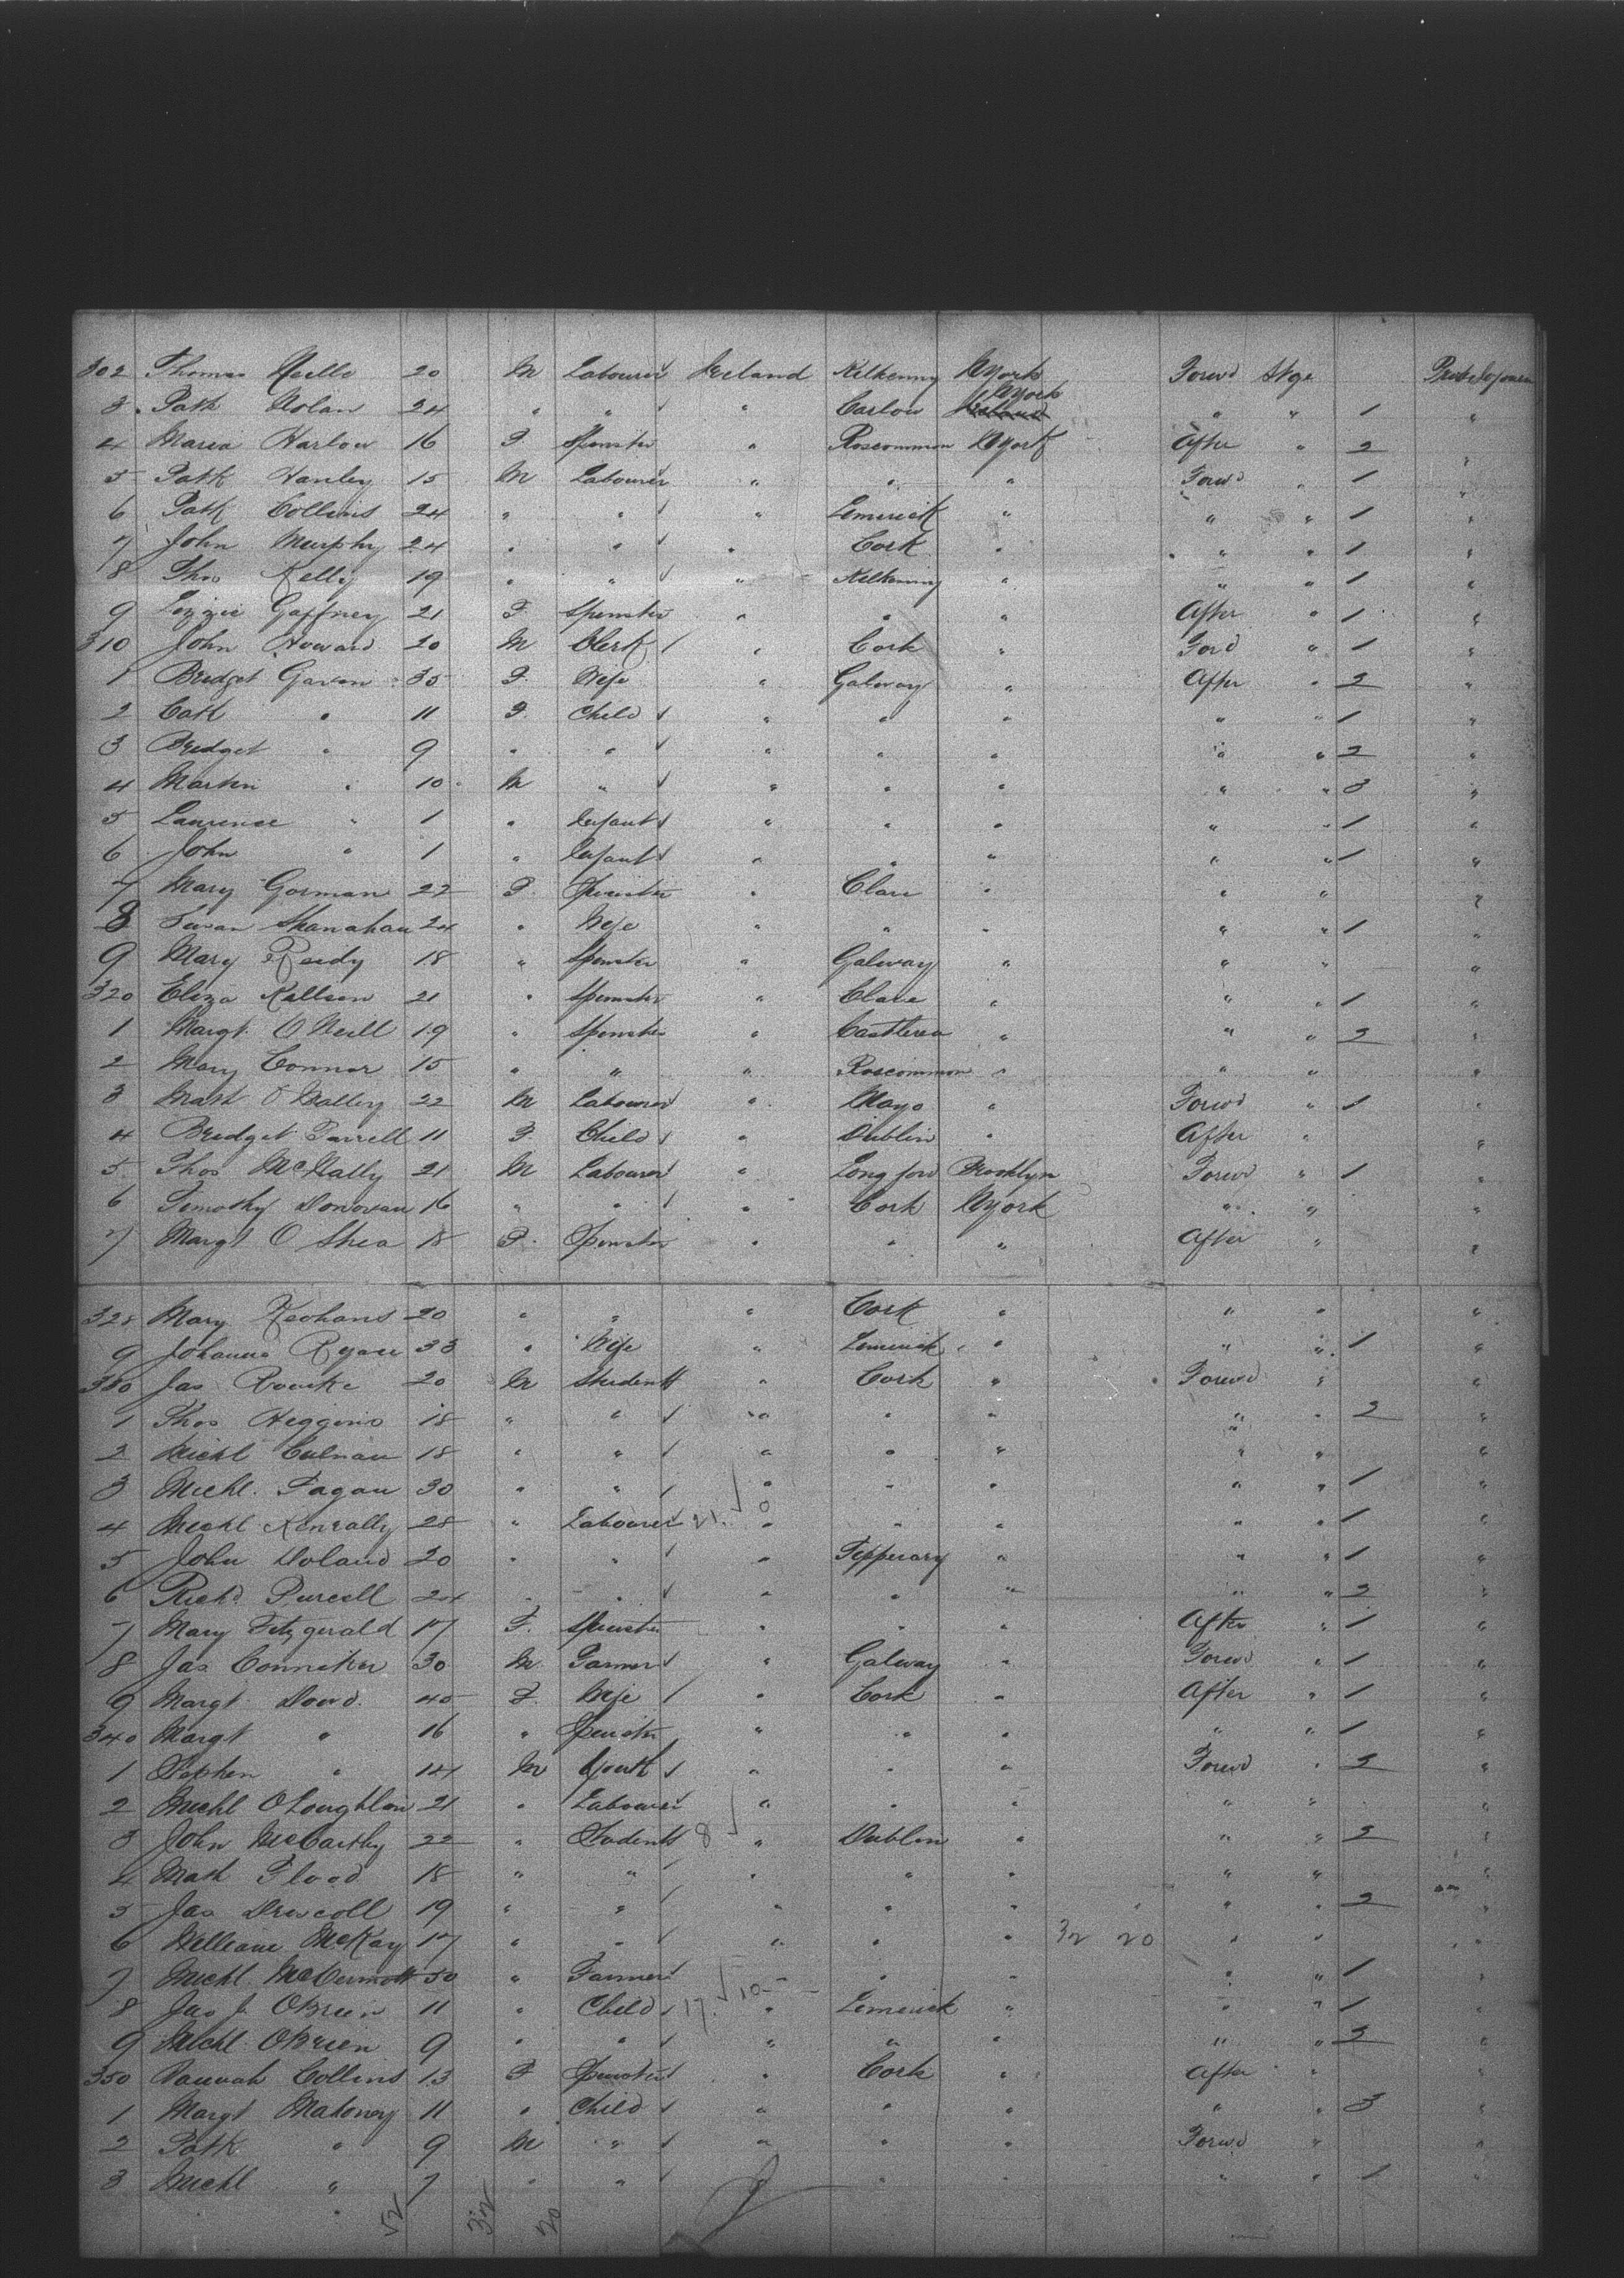 302 Thomas Neille 20 M Labourer Ireland Kilkenny NYork Forwd Stge
3 Patk Nolan 24 " " " Carlow NYork " " 1 "
4 Maria Harlow 16 F Spinster " Roscommon NYork After " 2 "
5 Patk Hanley 15 M Labourer " " " Forwd " 1 "
6 Patk Collins 24 " " " Limerick " " " 1 "
7 John Murphy 24 " " " Cork " " " 1 "
8 Thos Kelly 19 " " " Kilkenny " " " 1 "
9 Lizzie Gaffney 21 F Spinster " " " After " 1 "
310 John Howard 20 M Clerk " Cork " Ford " 1 "
1 Bridget Gavan 35 F Wife " Galway " After " 2 "
2 Cath " 11 F Child " " " " " 1 "
3 Bridget " 9 " " " " " " " 2 "
4 Martin " 10 M " " " " " " 3 "
5 Laurence " 1 " Infant " " " " " 1 "
6 John " 1 " Infant " " " " " 1 "
7 Mary Gorman 22 F Spinster " Clare " " " "
8 Susan Shanahan 24 " Wife " " " " " 1 "
9 Mary Reidy 18 " Spinster " Galway " " " "
320 Eliza Killeen 21 " Spinster " Clare " " " 1 "
1 Margt O Neill 19 " Spinster " Castlerea " " " 2 "
2 Mary Connor 15 " " " Roscommon " " " "
3 Mark O Malley 22 M Labourer " Mayo " Forwd " 1 "
4 Bridget Farrell 11 F Child " Dublin " After " "
5 Thos McNally 21 M Labourer " Longford Brooklyn Forwd " 1 "
6 Timothy Donovan 16 " " " Cork NYork " " "
7 Margt O Shea 18 F Spinster " " " After " "
328 Mary Keohans 20 " " " Cork " " " "
9 Johanna Ryan 33 " Wife " Limerick " " " 1 "
330 Jas Rourke 20 M Student " Cork " Forwd " "
1 Thos Higgins 18 " " " " " " " 2 "
2 Michl Culnan 18 " " " " " " " "
3 Michl Fagan 30 " " " " " " " 1 "
4 Michl Kineally 28 " Labourer 21 0 " " " " " 1 "
5 John Doland 20 " " " Tipperary " " " 1 "
6 Richd Purcell 24 " " " " " " " 2 "
7 Mary Fitzgerald 17 F Spinster " " " After " 1 "
8 Jas Conniker 30 M Farmer " Galway " Forwd " 1 "
9 Margt Dowd 40 F Wife " Cork " After " 1 "
340 Margt " 16 " Spinster " " " " " 1 "
1 Stephen " 14 M Youth " " " Forwd " 2 "
2 Michl O Loughlin 21 " Labourer " " " " " "
3 John McCarthy 22 " Student 8 " Dublin " " " 2 "
4 Math Flood 18 " " " " " " " "
5 Jas Driscoll 19 " " " " " " " 2 "
6 William McKay 17 " " " " " 32 20 " " "
7 Michl McDermott 50 " Farmer " " " " " 1
8 Jas J. OBrien 11 " Child 17 10 " Limerick " " " 1 "
9 Michl OBrien 9 " " " " " " " 2 "
350 Hannah Collins 13 F Spinster " Cork " After " "
1 Margt Mahoney 11 " Child " " " " " 3 "
2 Patk " 9 M " " " " Forwd " "
3 Michl " 7 " " " " " " 1 "
52 32 20